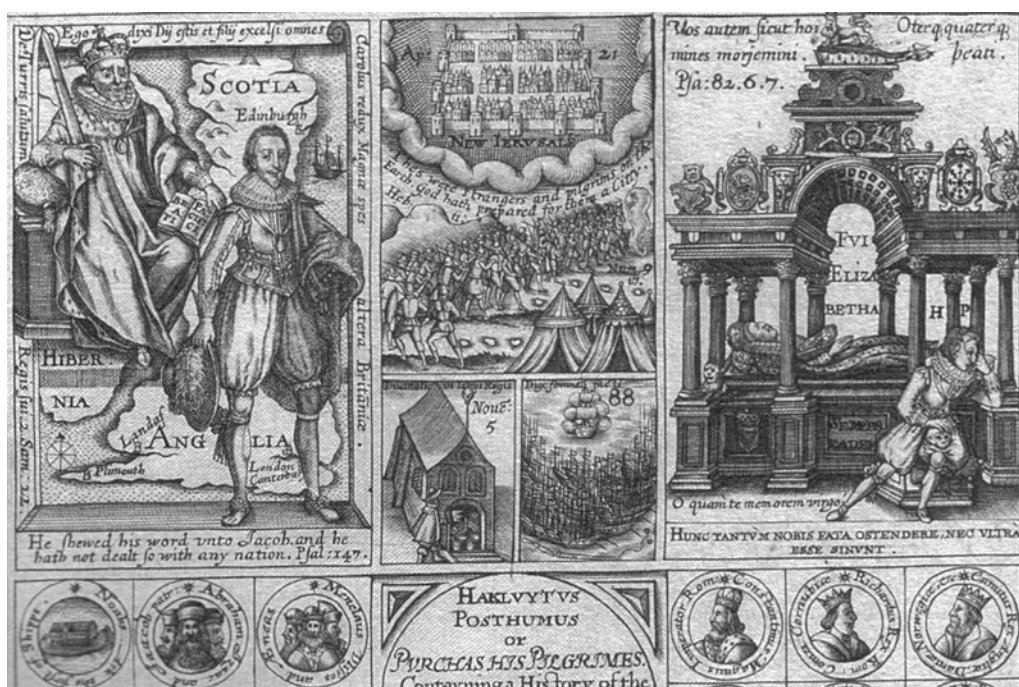 Ego dixi Dij estis et filij excelsi omnes
Turris salutum Regis sui. 2 Sam. 22
Carolus redux Magnæ spes altera Britãniæ.
SCOTIA
Edinburgh
BE
ATI
HIBER:
NIA
Landaf
ANG LIA
Plimouth
London
He shewed his word vnto Jacob. and he
hath not dealt so with any nation. Psal:147.
Apo: 21
NEW IERUSALĒ
strangers and pilgrims on the
Earth God hath prepared for them a City.
Heb
11:
Num 9
Nouē:
5
88
Vos autem sicut ho
mines moriemini.
Psa: 82. 6. 7.
O terq, quaterq;
beati.
FVI
ELIZA
BETHA
H P
SEMPER
EADEM
O quam te memorem virgo
HUNC TANTVM NOBIS FATA OSTENDERE, NEC VLTRA
ESSE SINVNT.
Noahs Ark the first of Shipps
Abraham Isaac and Jacob patr:
Menelaus Vlisses and Æneas
HAKLUYTVS
POSTHUMUS
or
PVRCHAS HIS PILGRIMES.
Contayning a History of the
Constantinus Magnus Imperator Rom:
Richardus Rex Rom: Comes Cornubiæ
Canutus Rex Angliæ Daniæ Norwegiæ etc